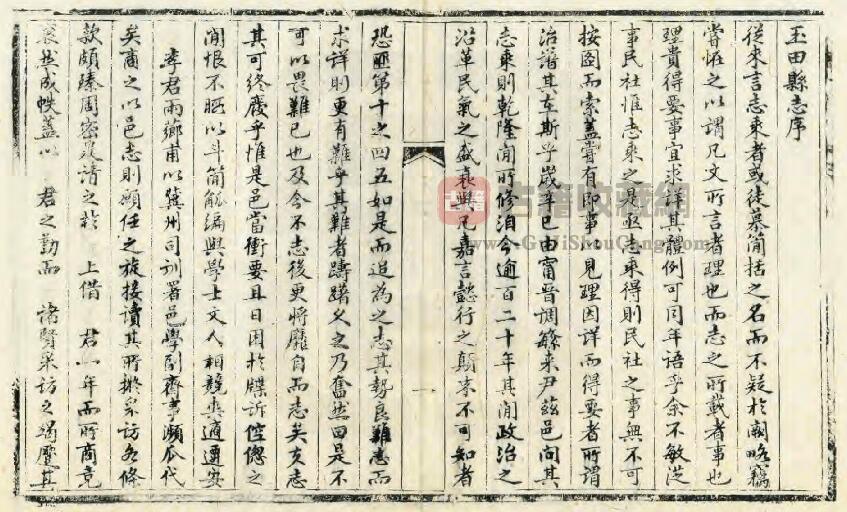 玉田縣志序
從來言志乘者或徒慕簡括之名而不疑於闕略竊
嘗怪之以謂凡文所言者理也而志之所載者事也
理貴得要事宜求詳其體例可同年語乎余不敏從
事民社惟志乘之是亟志乘得則民社之事無不可
按圖而索蓋嘗有即事以見理因詳而得要者所謂
治譜其在斯乎歲辛巳由甯晉調繁來尹茲邑問其
志乘則乾隆間所修洎今逾百二十年其間政治之
沿革民氣之盛衰與凡嘉言懿行之顛末不可知者
恐匪第十之四五如是而追為之志其勢良難志而
求詳則更有難乎其難者躊躇久之乃奮然曰是不
可以畏難已也及今不志後更將靡自而志矣友志
其可終廢乎惟是邑當衝要且日困於牒訴倥傯之
間恨不暇以斗筲觚編與學士文人相競爽適遷安
李君雨薌甫以冀州司訓署邑學副齊事瀕瓜代
矣商之以邑志則願任之旋接讀其所擬采访各條
款頗臻周密爰請之於 上借 君一年而所商竟
裒然成帙蓋以 君之勤而 諸賢采访之竭麈其
古籍收藏網
www.GuJiShouCang.com